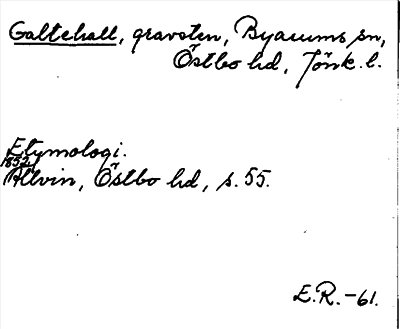 Galtehall, gravsten, Byarums sn,
Östbo hd, Jönk. l.
Etymologi.
1852
Allvin, Östbo hd, s. 55.
E.R. -61.